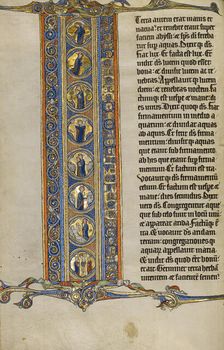 Terra autem erat inanis et
vacua: et tenebre erant super
faciem abyssi: et sps dei fereba
tur sup aquas. Dixit qz ds.
Fiat lux. Et facta est lux. Et
vidit ds lucem quod esset
bona: et divisit lucem ac te
nebras. Appellavit qz lucem
diem: et tenebras noctem. Fa
ctumqz est vespe et mane di
es unus. Dixit quoqz ds. Fiat
firmamentum in medio a
quarum: et dividat aquas
ab aquis. Et fecit ds firma
mentum: divisitqz aquas
que erant sub firmamento
ab his que erant super fir
mamentum. Et factum est ita.
Vocavitqz ds firmamentum
celum. Et factum est vespe et
mane: dies secundus. Dixit
vo ds. Congregentur aque
que sub celo sunt in locu unu:
et appareat arida. Factuqz e
ita. Et vocavit ds aridam
terram: congregationesqz
aquarum appellavit maria.
Et vidit ds quod eet bonu
et ait. Germinet terra herba
virentem et facientem semen: